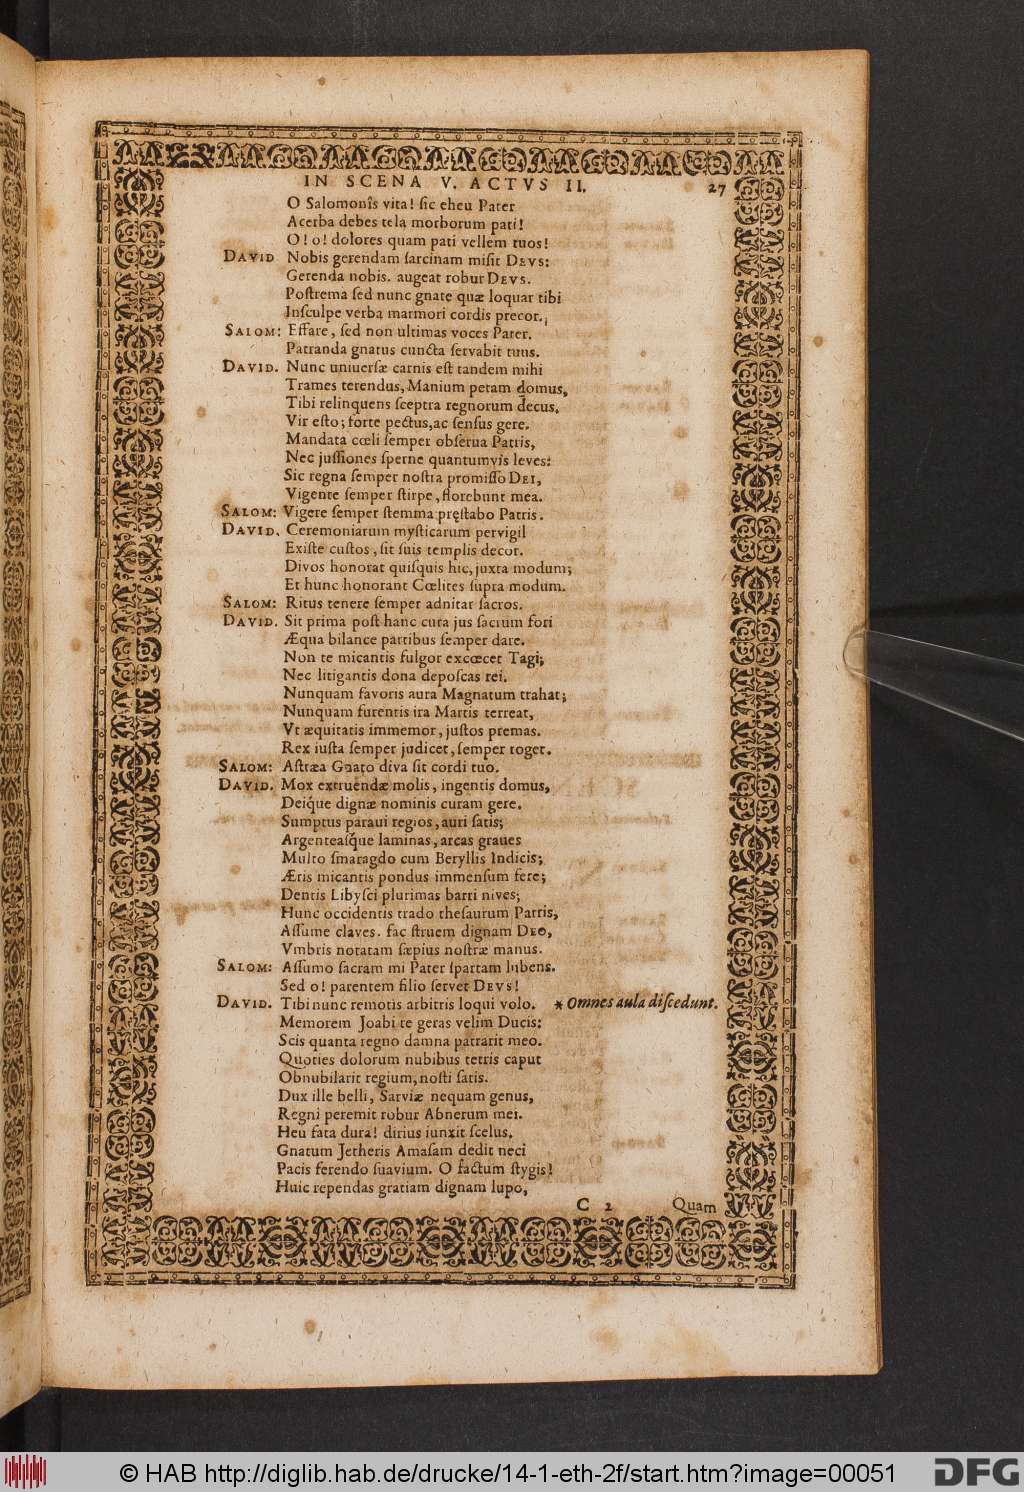 IN SCENA V. ACTVS II. 27
O Salomonîs vita! ſic eheu Pater
Acerba debes tela morborum pati!
O! o! dolores quam pati vellem tuos!
DAVID Nobis gerendam ſarcinam miſit DEVS:
Gerenda nobis. augeat robur DEVS.
Poſtrema ſed nunc gnate quæ loquar tibi
Inſculpe verba marmori cordis precor.
SALOM: Effare, ſed non ultimas voces Pater.
Patranda gnatus cuncta ſervabit tuus.
DAVID. Nunc univerſæ carnis eſt tandem mihi
Trames terendus, Manium petam domus,
Tibi relinquens ſceptra regnorum decus.
Vir eſto; forte pectus, ac ſenſus gere.
Mandata cœli ſemper obſerua Patris,
Nec juſſiones ſperne quantumvis leves:
Sic regna ſemper noſtra promiſſo DEI,
Vigente ſemper ſtirpe, florebunt mea.
SALOM: Vigere ſemper ſtemma pręſtabo Patris.
DAVID. Ceremoniarum myſticarum pervigil
Exiſte cuſtos, ſit ſuis templis decor.
Divos honorat quiſquis hic, juxta modum;
Et hunc honorant Cœlites ſupra modum.
SALOM: Ritus tenere ſemper adnitar ſacros.
DAVID. Sit prima poſt hanc cura jus ſacrum fori
Æqua bilance partibus ſemper dare.
Non te micantis fulgor excœcet Tagi;
Nec litigantis dona depoſcas rei.
Nunquam favoris aura Magnatum trahat;
Nunquam furentis ira Martis terreat,
Vt æquitatis immemor, juſtos premas.
Rex iuſta ſemper judicet, ſemper roget.
SALOM: Aſtræa Gnato diva ſit cordi tuo.
DAVID. Mox extruendæ molis, ingentis domus,
Deiq́ue dignæ nominis curam gere.
Sumptus paraui regios, auri ſatis;
Argenteaſq́ue laminas, arcas graues
Multo ſmaragdo cum Beryllis Indicis;
Æris micantis pondus immenſum fere;
Dentis Libyſci plurimas barri nives;
Hunc occidentis trado theſaurum Patris,
Aſſume claves. fac ſtruem dignam DEO,
Vmbris notatam ſæpius noſtræ manus.
SALOM: Aſſumo ſacram mi Pater ſpartam lubens.
Sed o! parentem filio ſervet DEVS!
DAVID. Tibi nunc remotis arbitris loqui volo. * Omnes aula diſcedunt.
Memorem Joabi te geras velim Ducis:
Scis quanta regno damna patrarit meo.
Quoties dolorum nubibus tetris caput
Obnubilarit regium, noſti ſatis.
Dux ille belli, Sarviæ nequam genus,
Regni peremit robur Abnerum mei.
Heu fata dura! dirius iunxit ſcelus.
Gnatum Jetheris Amaſam dedit neci
Pacis ferendo ſuavium. O factum ſtygis!
Huic rependas gratiam dignam lupo,
C 2 Quam
© HAB http://diglib.hab.de/drucke/14-1-eth-2f/start.htm?image=00051 DFG